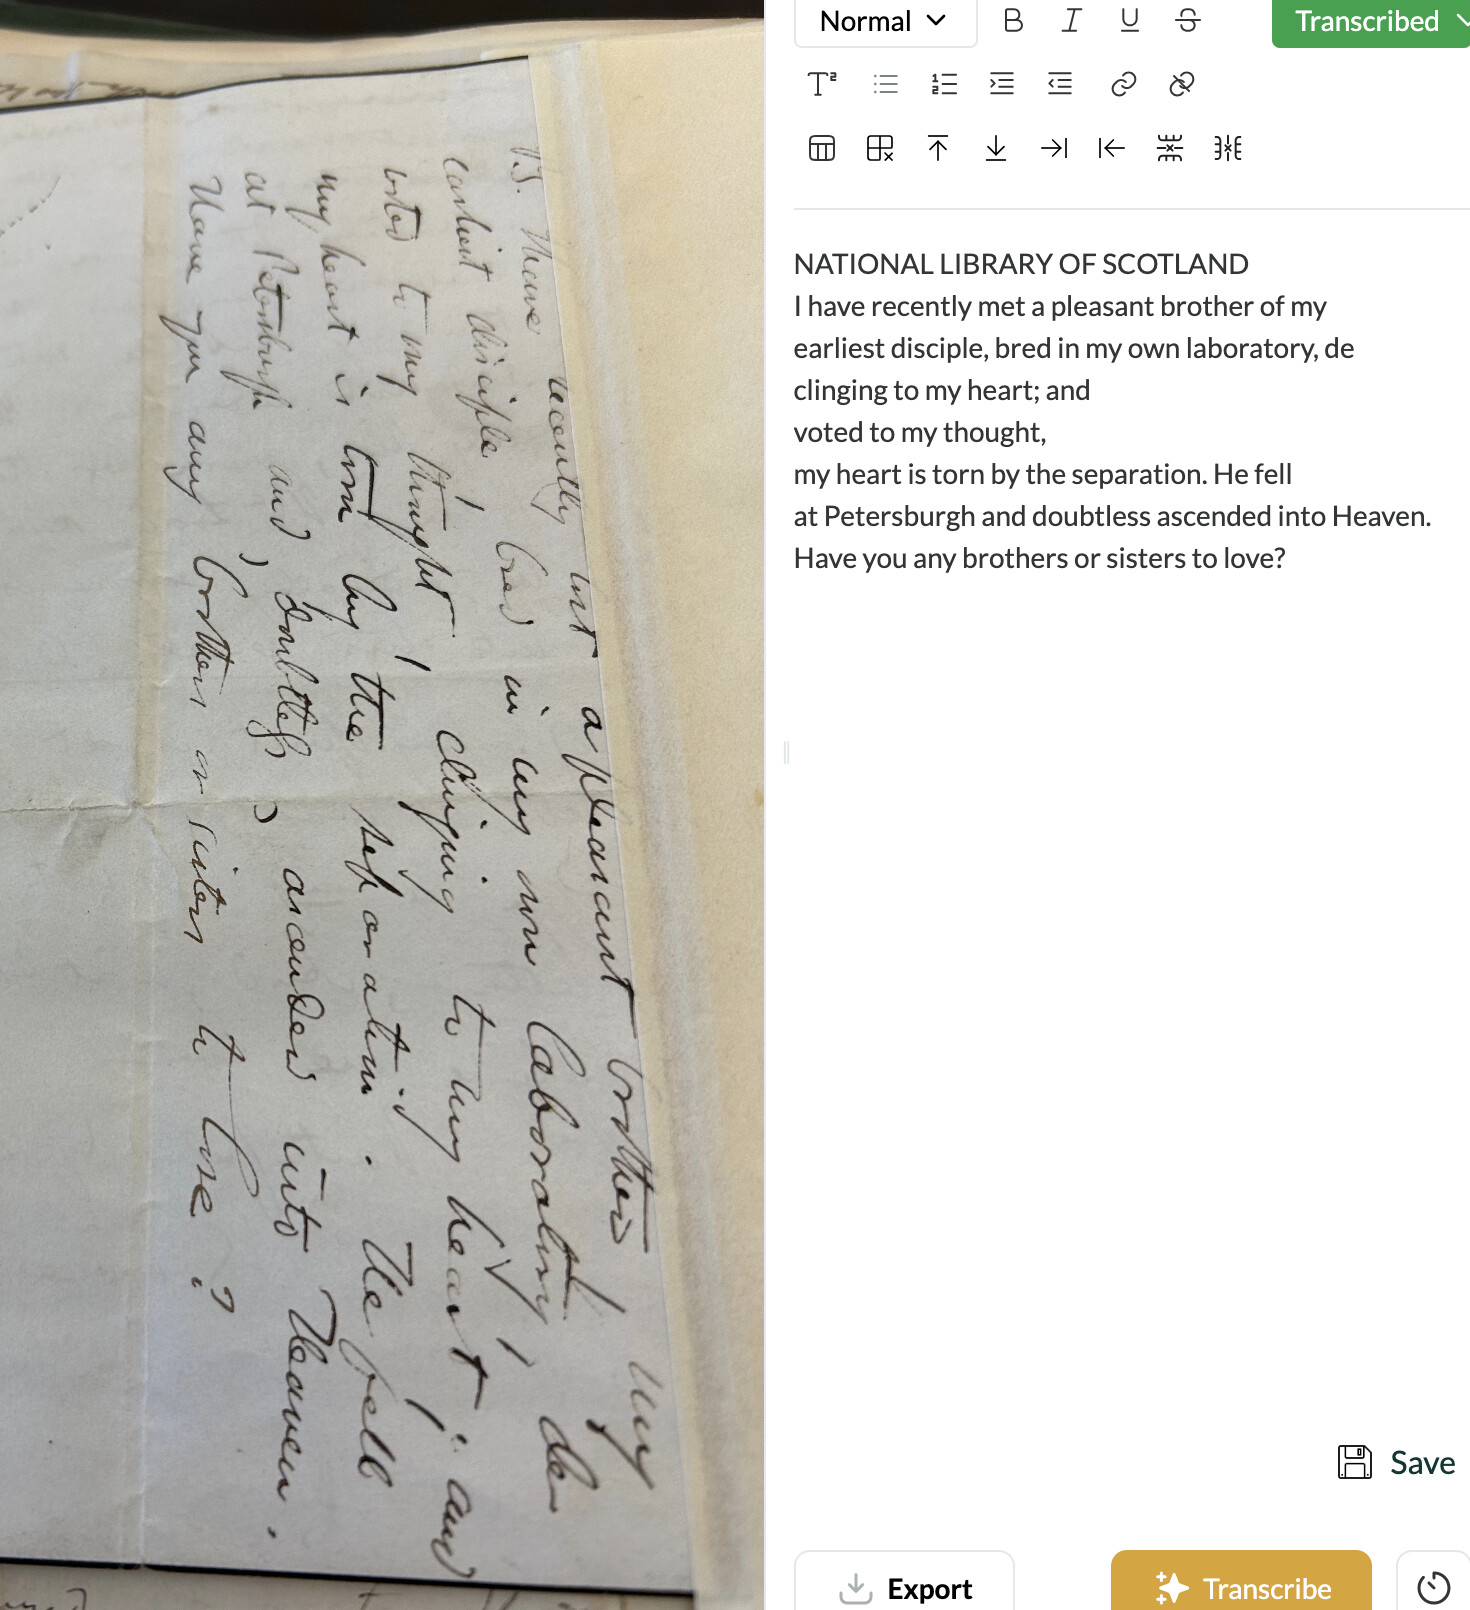 P.S. I have recently lost a pleasant brother, my
earliest disciple, bred in my own Laboratory, de
voted to my thought, clinging to my heart; and
my heart is torn by the separation. He fell
at Petersburgh and, doubtless, ascended into Heaven.
Have you any brothers or sisters to love?
Normal B I U S Transcribed
NATIONAL LIBRARY OF SCOTLAND
I have recently met a pleasant brother of my
earliest disciple, bred in my own laboratory, de
clinging to my heart; and
voted to my thought,
my heart is torn by the separation. He fell
at Petersburgh and doubtless ascended into Heaven.
Have you any brothers or sisters to love?
Save
Export
Transcribe